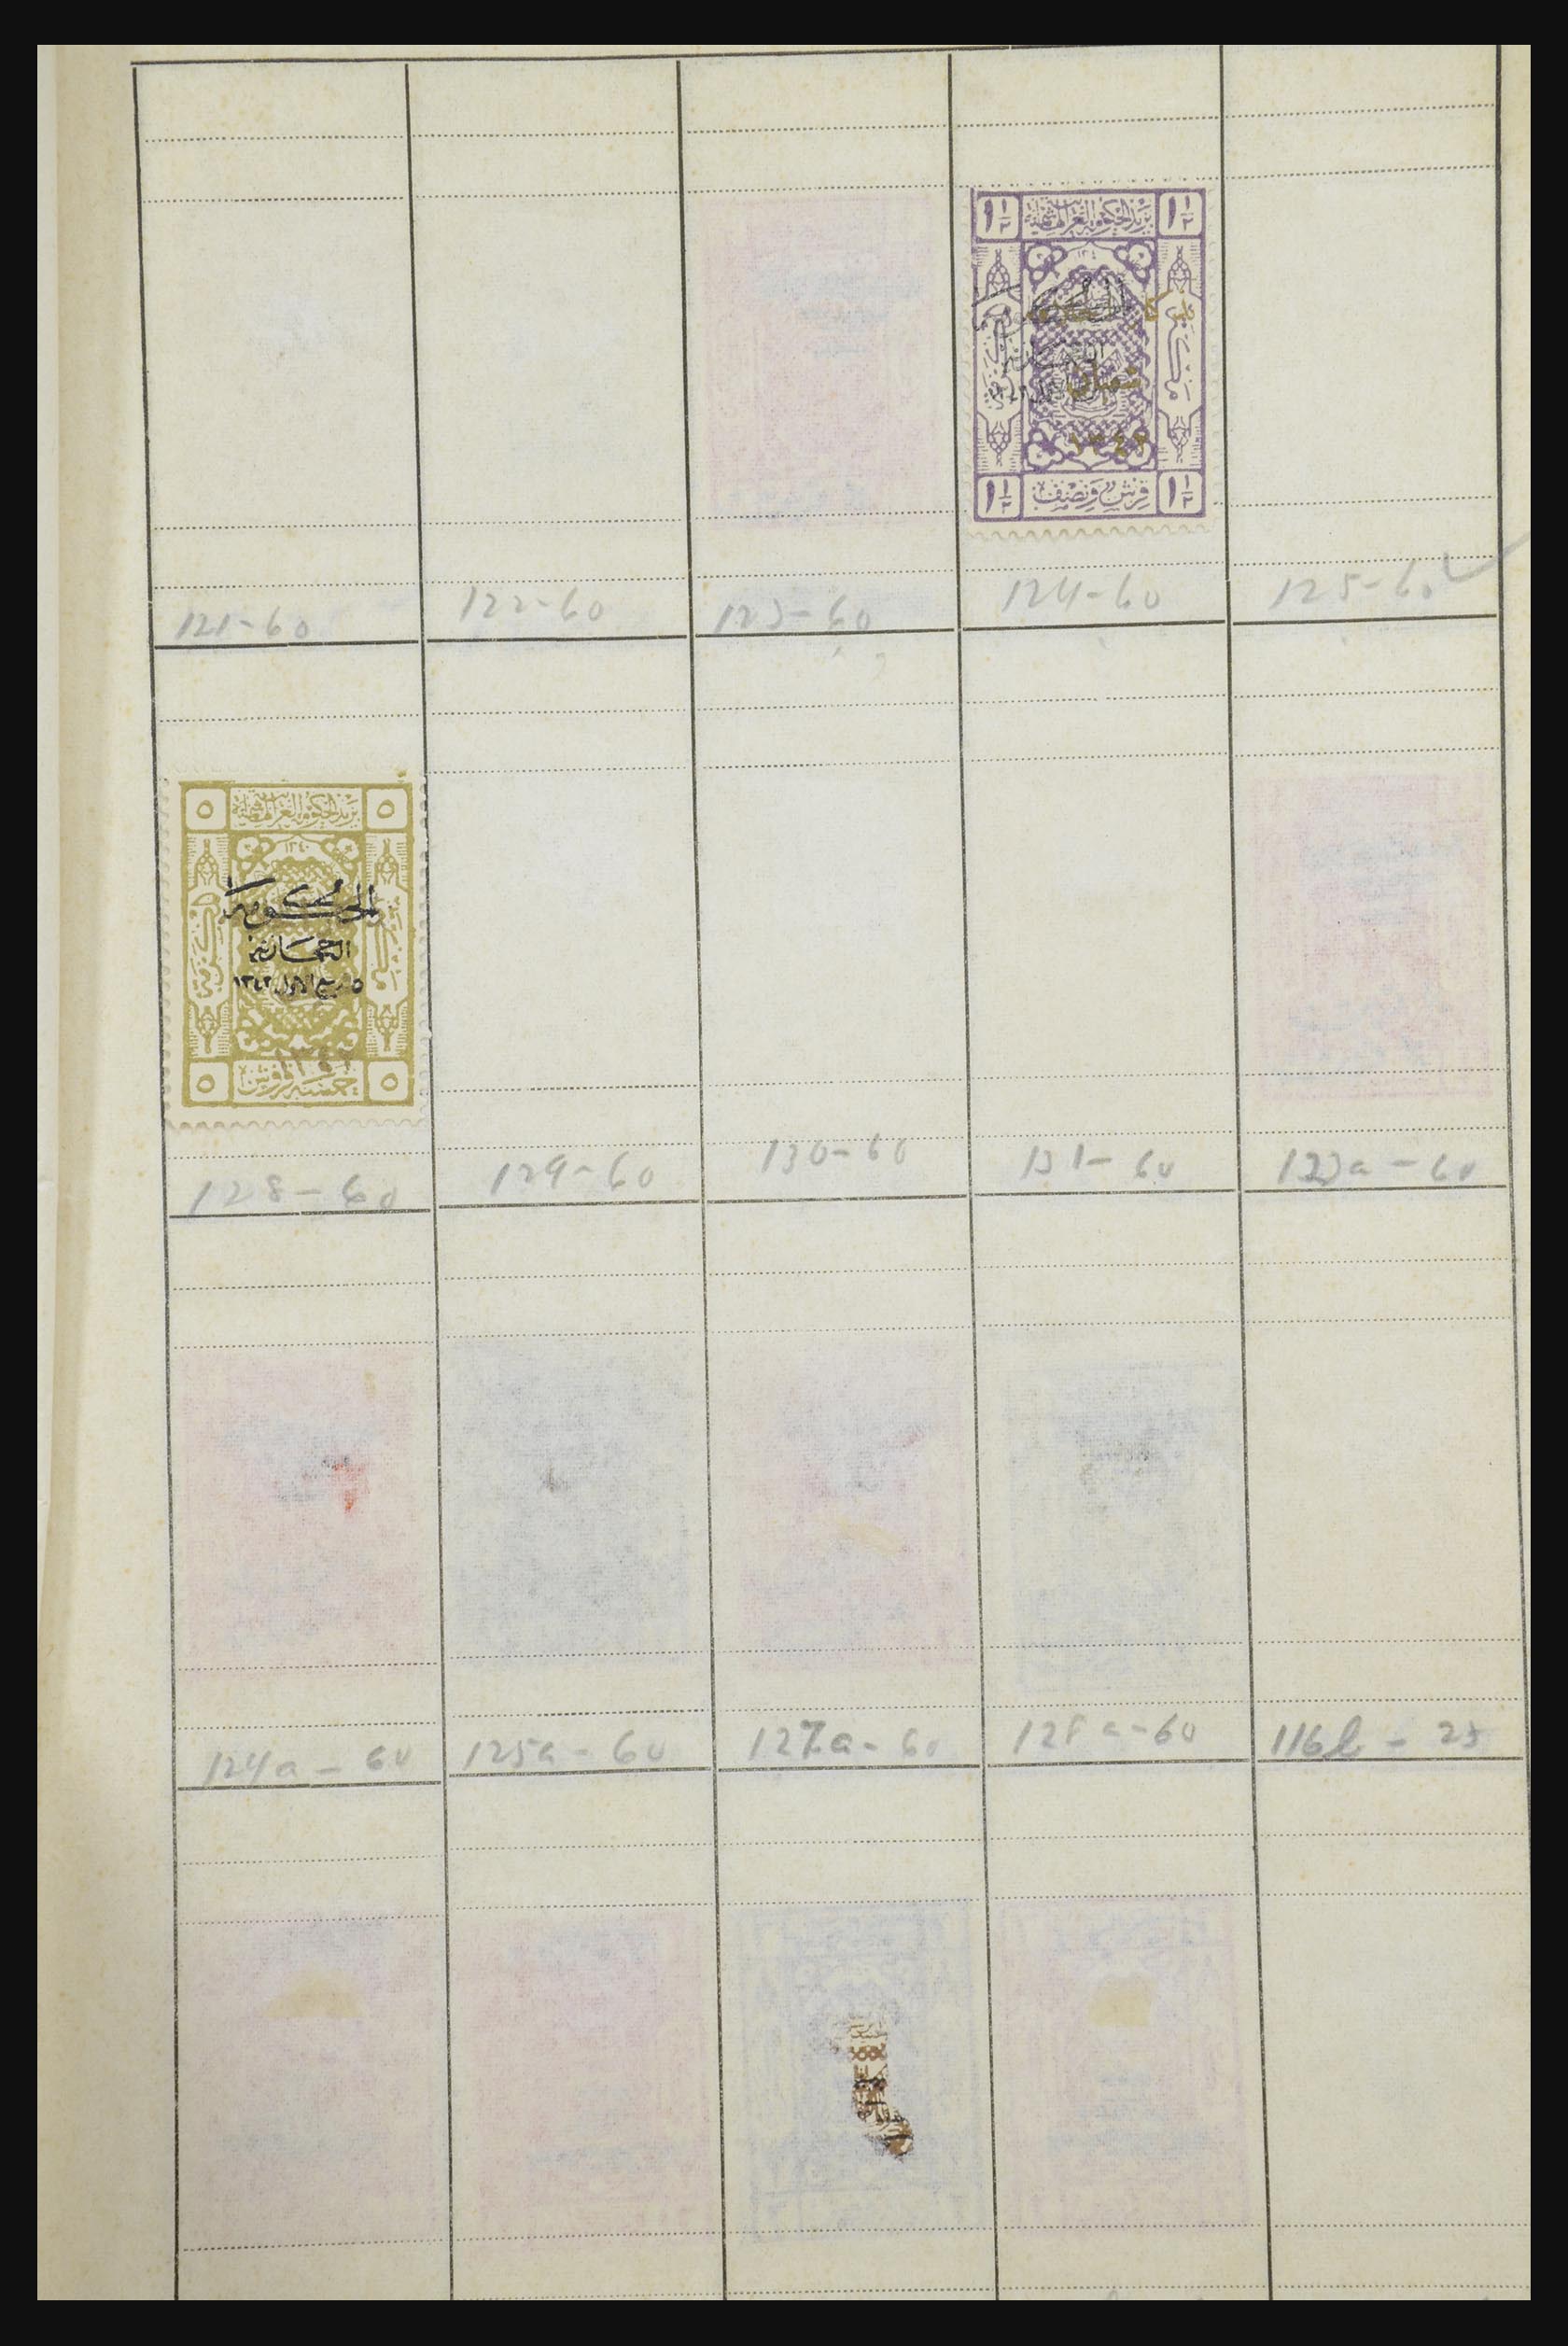 ١ ١/٢ بريد الحكومة العربية الهاشمية ١ ١/٢
١٣٤٠
١ ١/٢ قرش ونصف ١ ١/٢
121-60
122-60
123-60
124-60
125-60
٥ بريد الحكومة العربية الهاشمية ٥
١٣٤٠
الحكومة
الحجازية
٥ ربيع الاول ١٣٤٣
١٣٤٢
٥ خمسة قروش ٥
128-60
129-60
130-60
131-60
123a-60
124a-60
125a-60
127a-60
128a-60
116b-25